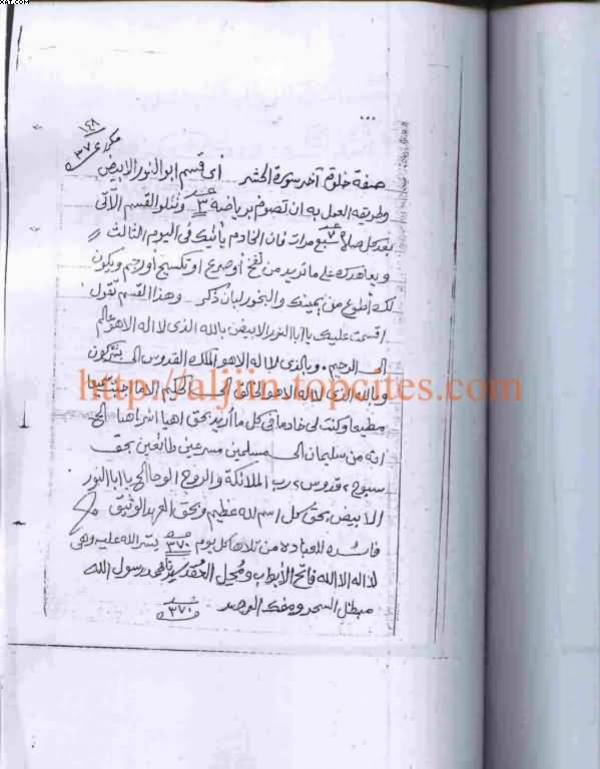 XAT.COM
١٤٨
مكررة ٣٧
...
صفة خلوة آخر سورة الحشر أى قسم ابو النور الابيض
وطريقة العمل به ان تصوم برياضة ٣ وتتلو القسم الآتى
بعد كل صلاة ٧ سبع مرات فان الخادم يأتيك فى اليوم الثالث
ويعاهدك على ما تريد من لفح أو صرع او تكسيح أو رجم ويكون
لك أطوع من يمينك والبخور لبان ذكر وهذا القسم تقول
اقسمت عليك يا ابا النور الابيض بالله الذى لا اله الا هو عالم
الى الرحيم وبالذى لا اله الا هو الملك القدوس الى يشركون
وبالله الذى لا اله الا هو الخالق الى الحكيم الا ما
http://aljjin.topcites.com
مطيعا وكنت لى خادما فى كل ما أريد بحق اهيا اشراهيا الخ
انه من سليمان الى مسلمين مسرعين طائعين بحق
سبوح قدوس رب الملائكة والروح الوحا الخ يا ابا النور
الابيض بحق كل اسم لله عظيم وبحق العهد الوثيق
فائدة للعبادة من تلاها كل يوم ٣٧٠ يسر الله عليه وهى
لا اله الا الله فاتح الأبواب ومحيل العقد رسول الله
مبطل السحر
٣٧٠